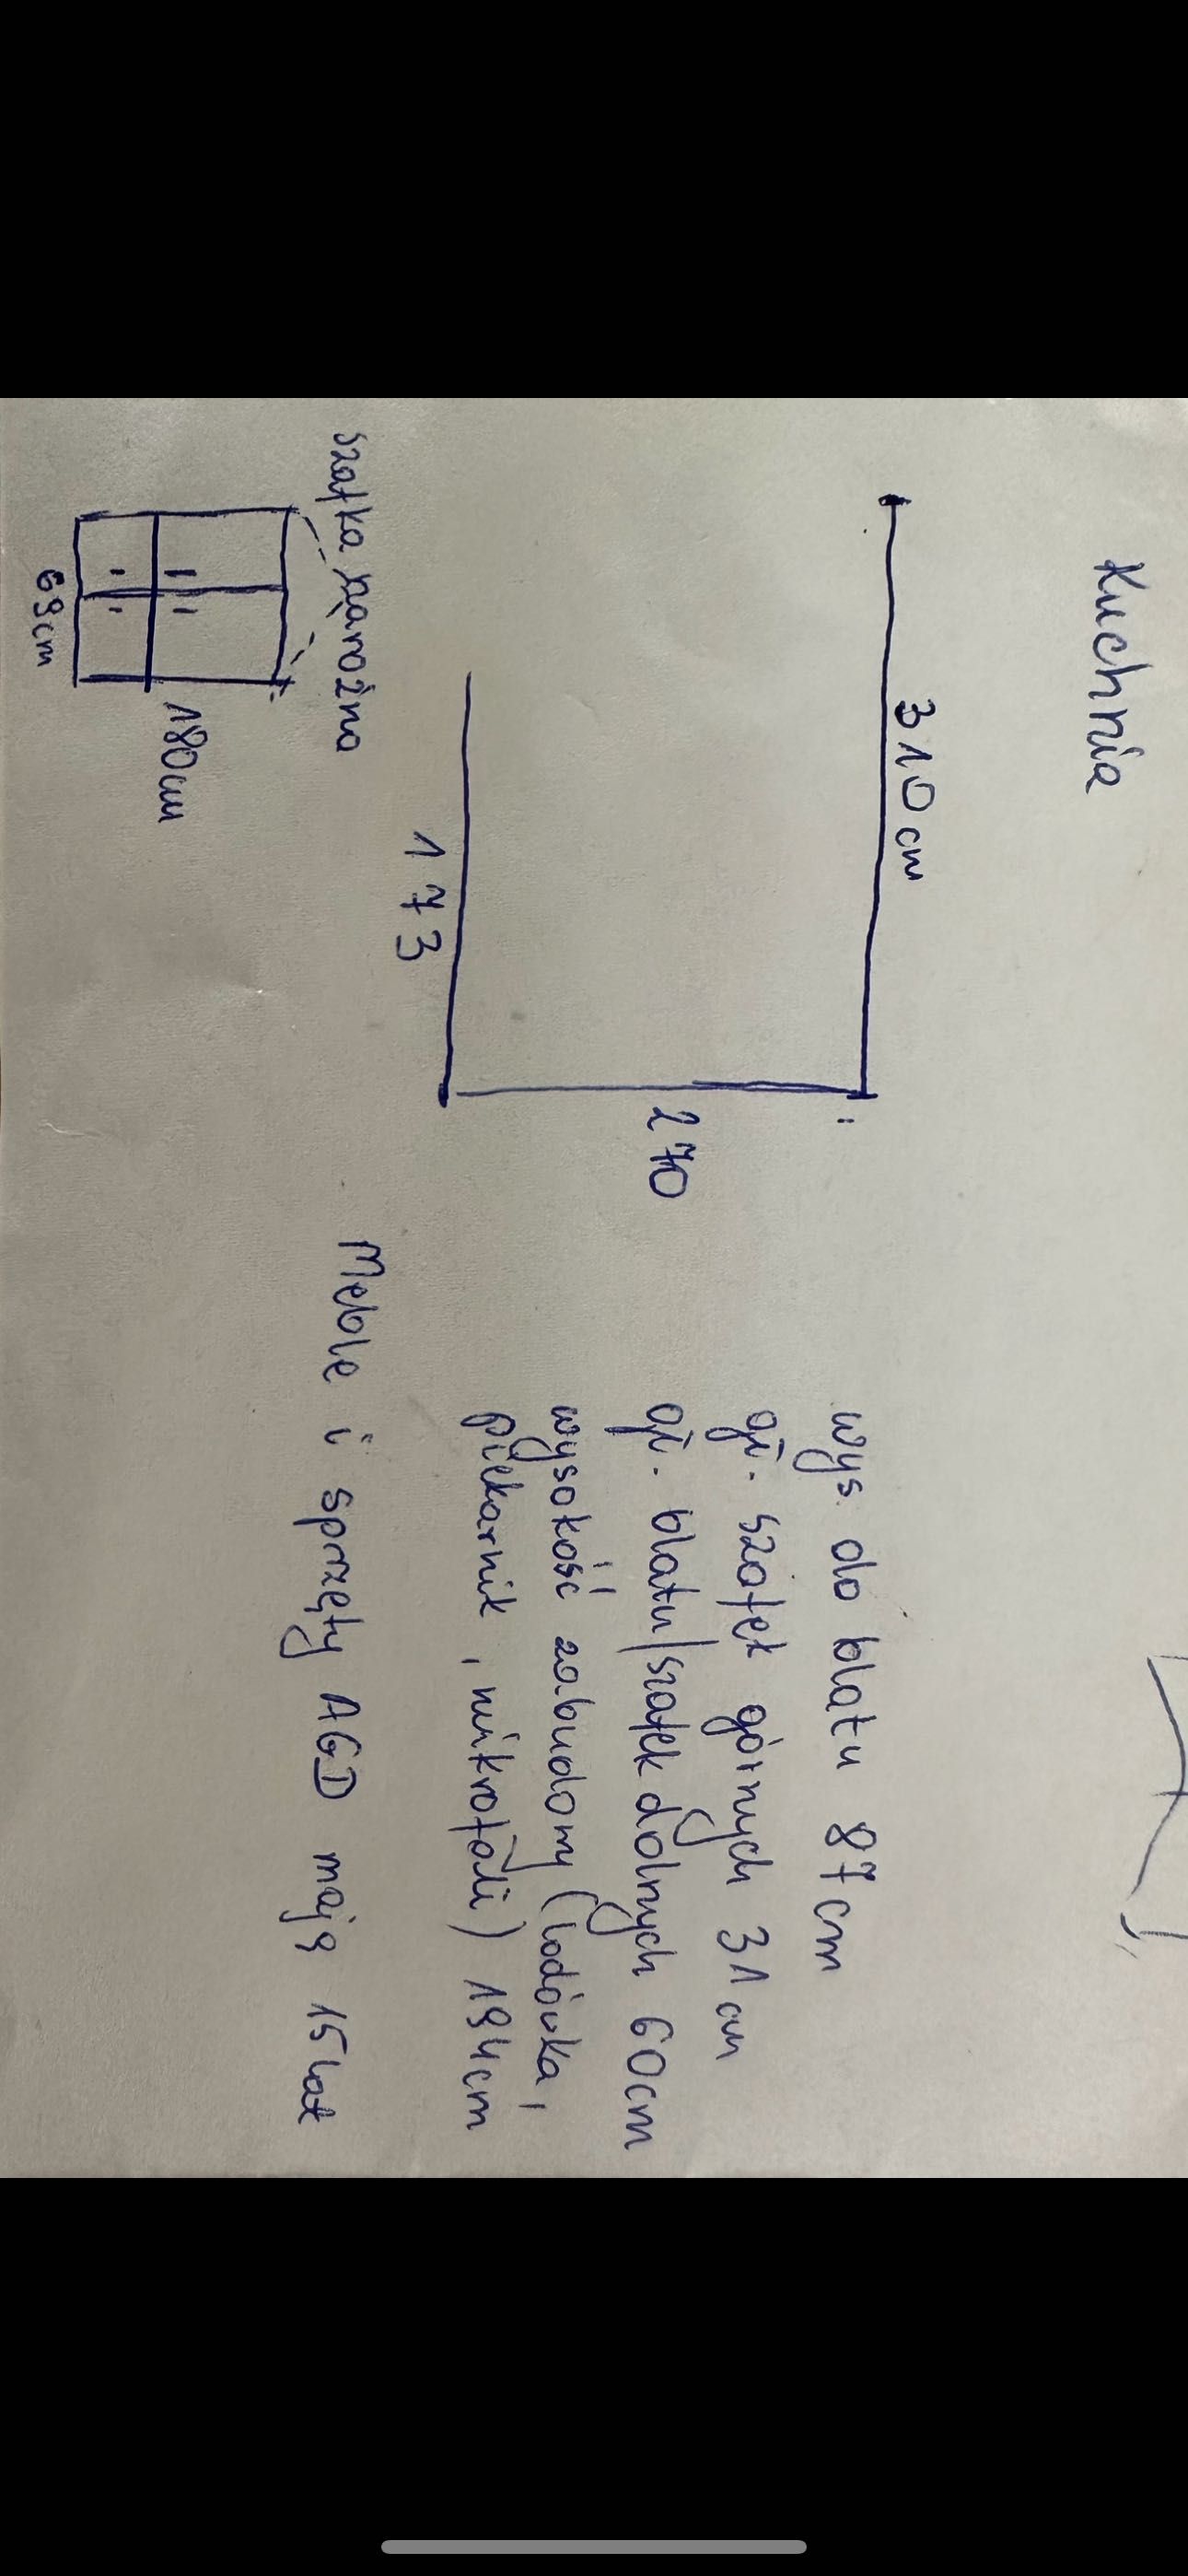 Kuchnia
310 cm
270
173
wys. do blatu 87cm
gł. szafek górnych 31 cm
gł. blatu/szafek dolnych 60cm
wysokość zabudowy (lodówka,
piekarnik, mikrofali) 194cm
szafka narożna
180cm
69cm
Meble i sprzęty AGD mają 15 lat